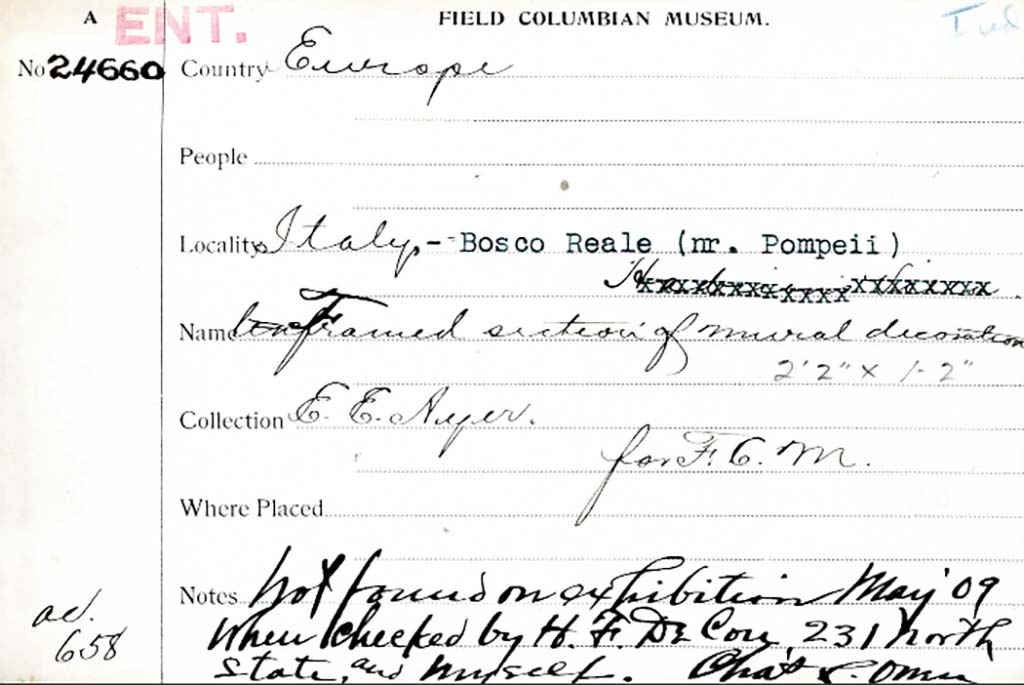 A ENT. FIELD COLUMBIAN MUSEUM.
No 24660 Country Europe
People
Locality Italy, - Bosco Reale (nr. Pompeii)
xxxxxxxxxxxxxxxxxxxxx
Name Framed section of mural decoration
2'2" x 1-2"
Collection E. E. Ayer.
for F. C. M.
Where Placed
Notes Not found on exhibition May '09
ac. when checked by H. F. 231 North
658 State, and myself. Chas